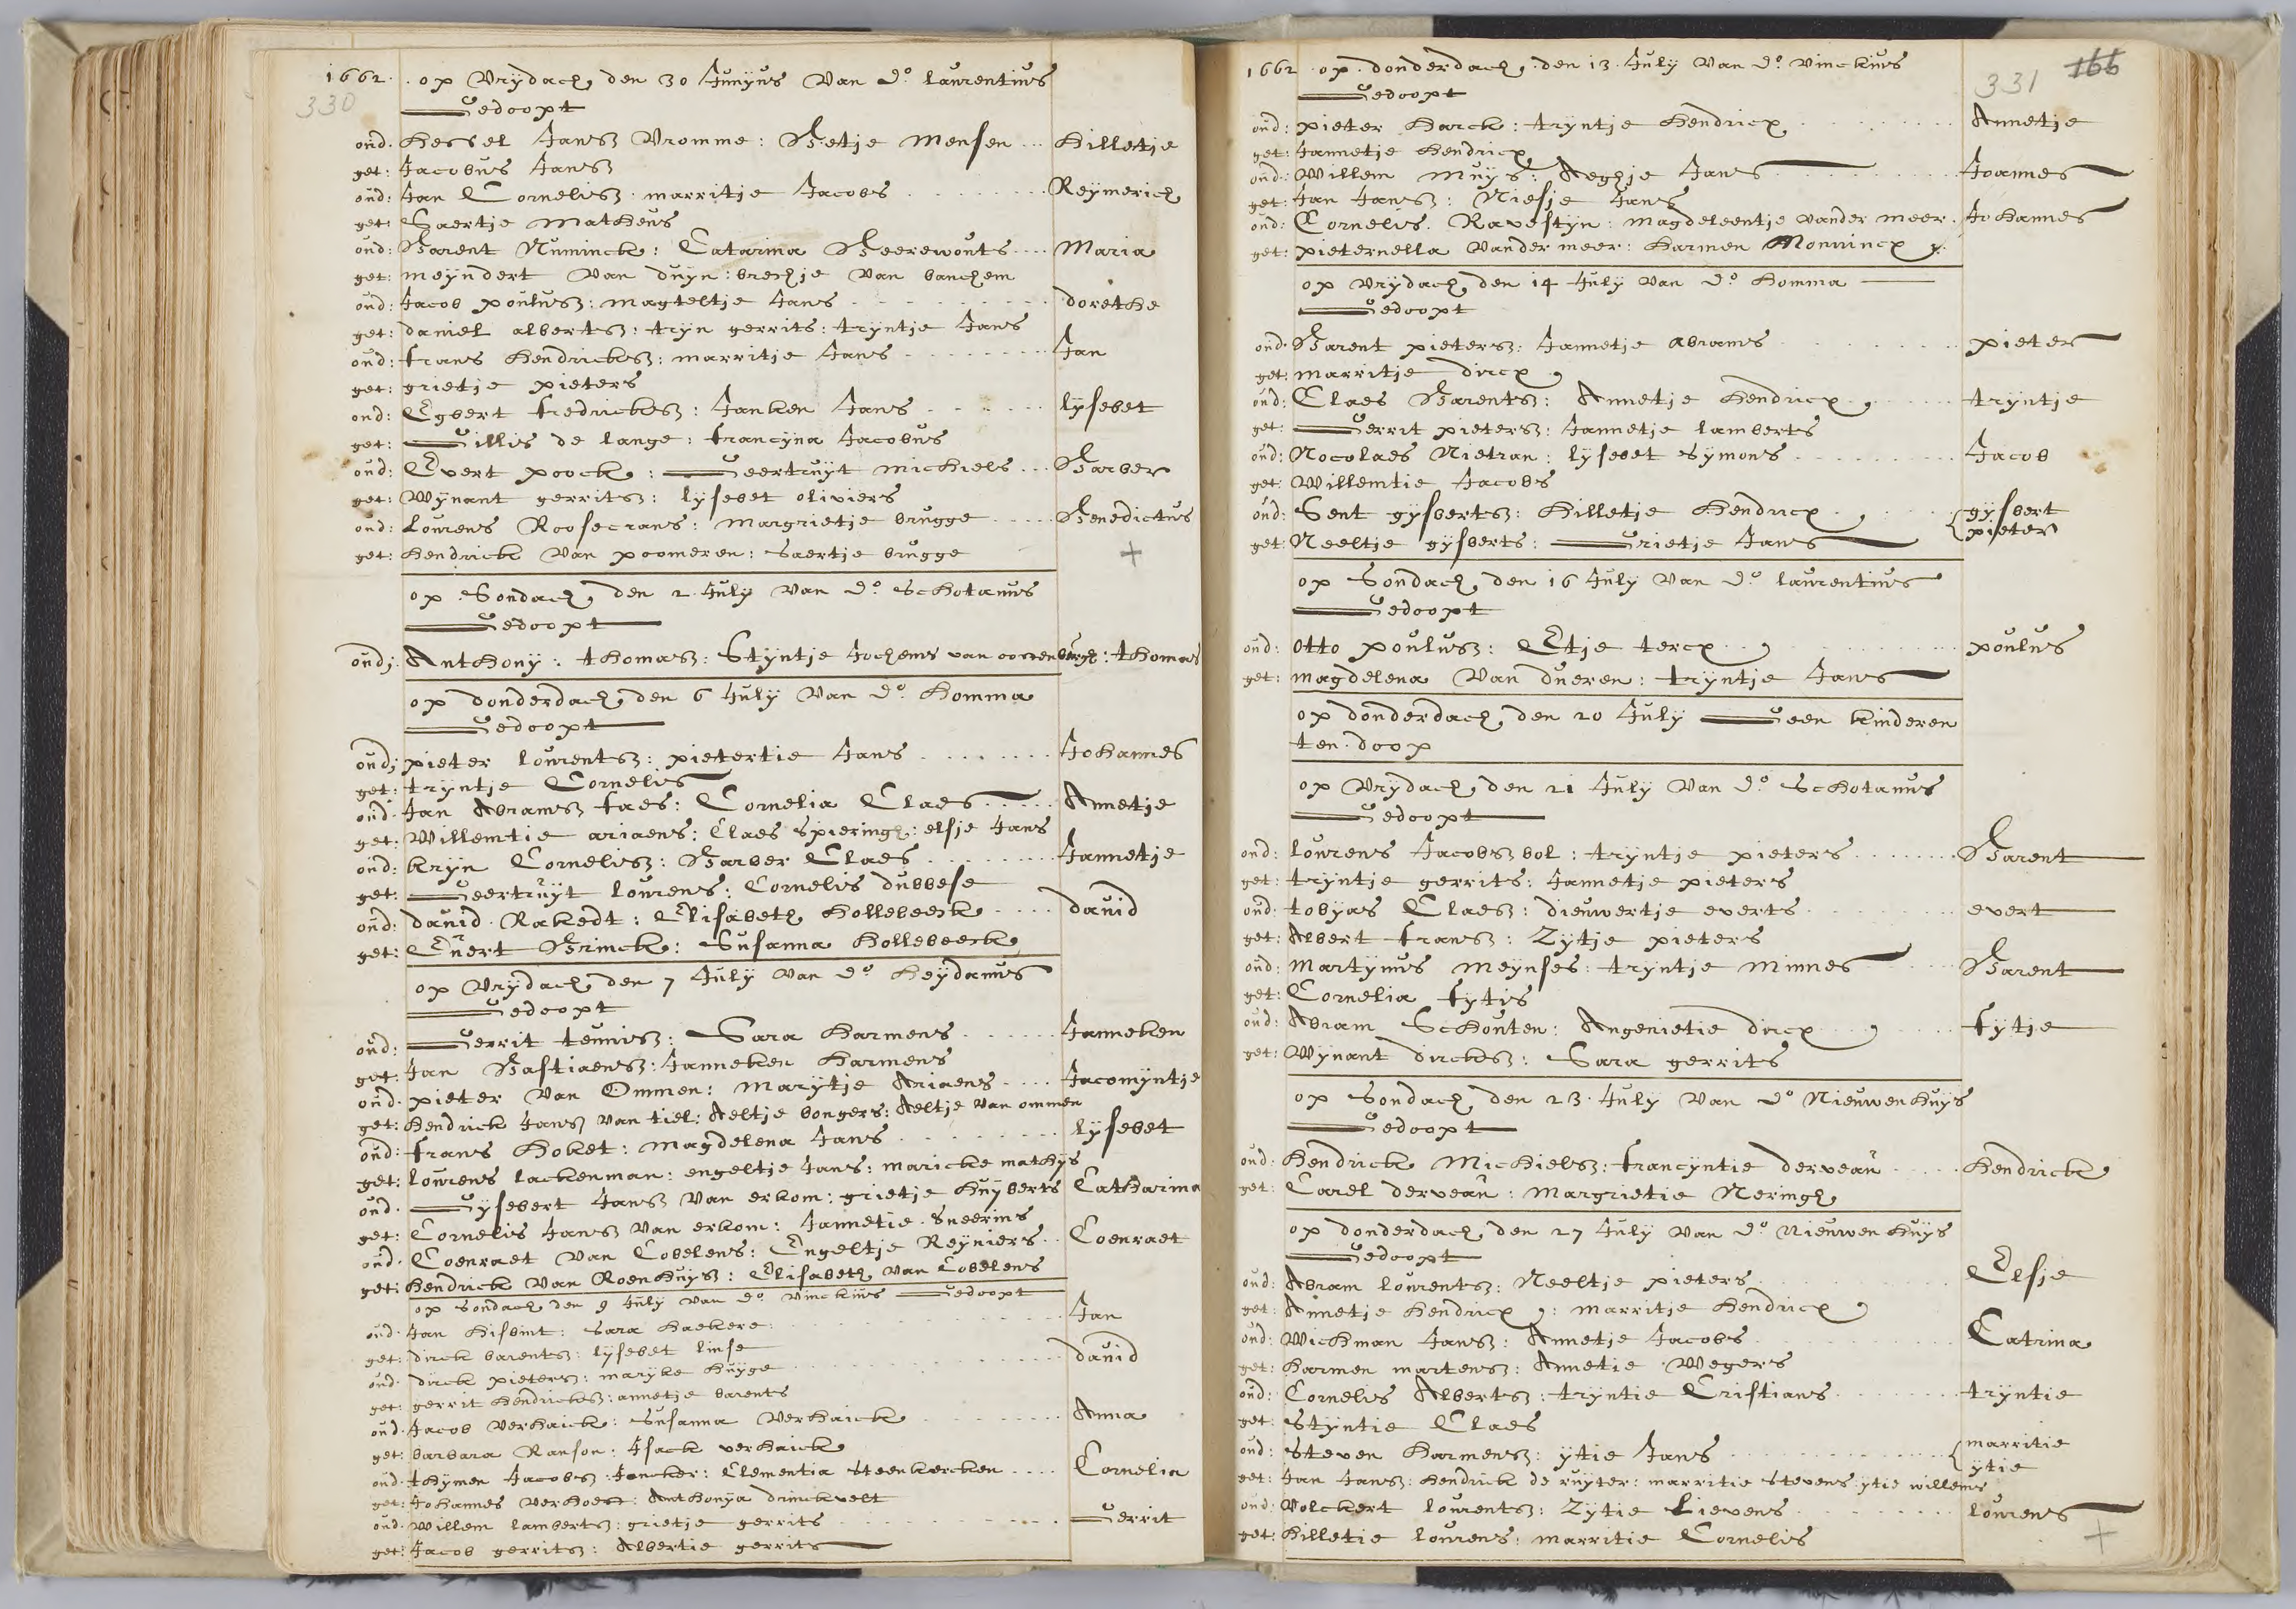 1662. op Vrydach, den 30 Junyus Van do. laurentius
330
Gedoopt
oud. Hessel Jansz Vromme: Betje Mensen ... Hilletje
get: Jacobus Jansz
oud: Jan Cornelisz. marritje Jacobs ........ Reymerich
get: Saertje Matheus
oud: Barent Numinck: Catarina Beerewouts .... Maria
get: meyndert Van duyn: brechje Van banchem
oud: Jacob poulusz: magteltje Jans ......... dorethe
get: daniel albertsz: tryn gerrits: tryntje Jans
oud: frans hendricksz: marritje Jans ........ Jan
get: grietje pieters
oud: Egbert fredricksz: Janken Jans ...... lysebet
get: Gillis de lange: francyna Jacobus
oud: Evert poock: Geertruyt michiels ... Barber
get: Wynant gerritsz: lysebet oliviers
oud: Lourens Roosecrans: Margrietje brugge .... Benedictus
get: hendrick Van poomeren: Saertje brugge +
op Sondach, den 2. July Van do. Schotanus
Gedoopt
oud; Anthony: thomasz: Styntje Jochems van oorrenburgh: thomas
op donderdach, den 6 July Van do. homma
Gedoopt
oud; pieter lourentsz: pietertie Jans ........ Johannes
get: tryntje Cornelis
oud. Jan Abramsz faes: Cornelia Claes ..... Annetje
get: Willemtie ariaens: Claes Spieringh: elsje Jans
oud: kryn Cornelisz: Barber Claes ........ Jannetje
get: Geertruyt lourens: Cornelis dubbese
oud: david. Rakedt: Elisabeth hollebeeck .... david
get: Evert Brinck: Susanna hollebeeck
op Vrydach, den 7 July Van do heydanus
Gedoopt
oud: Gerrit teunisz: Sara harmens ...... Janneken
get: Jan Bastiaensz: Janneken harmens
oud. pieter Van Ommen: Marytje Ariaens .... Jacomyntje
get: hendrick Jansz Van tiel: Aeltje bongers: Aeltje Van ommen
oud: frans hoket: magdelena Jans ......... lysebet
get: lourens lackenman: engeltje Jans: maricke mathys
oud. Gysebert Jansz Van erkom: grietje huyberts Catharina
get: Cornelis Jansz Van erkom: Jannetie. Sneerins
oud. Coenraet Van Cobelens: Engeltje Reyniers .. Coenraet
get: hendrick Van Roenhuysz: Elisabeth Van Cobelens
op Sondach den 9 July Van do Vinckius Gedoopt
oud. Jan hisbint: Sara haekere: ........ Jan
get: dirck barentsz: lysebet linse
oud. dirck pietersz: maryke huyge ........ david
get: gerrit hendricksz: annetje barents
oud. Jacob Verhaick: Susanna Verhaick ........ Anna
get: barbara Ranson: Isack verhaick
oud: thymen Jacobsz Joncker: Clementia steenkercken .... Cornelia
get: Johannes verhoest: Anthonya drinckvelt
oud. Willem lambertsz: grietje gerrits ........ Gerrit
get: Jacob gerritsz: Albertie gerrits
1662 op. donderdach, den 13. July Van do Vinckius
331 166
Gedoopt
oud: pieter harck: tryntje hendricx ........ Annetje
get: Jannetje hendricx
oud: Willem Muys: Aeghje Jans ........ Joannes
get: Jan Jansz: Niesje Jans
oud: Cornelis. Ravestyn: magdeleentje vander meer. Johannes
get: pieternella Vander meer: harmen Monnincx
op Vrydach, den 14 July Van do homma
Gedoopt
oud. Barent pietersz: Jannetje Abrams ........ pieter
get: marritje dircx
oud: Claes Barentsz: Annetje hendricx ...... tryntje
get: Gerrit pietersz: Jannetje lamberts
oud: Nocolaes Nietran: lysebet Symons ........ Jacob
get: Willemtie Jacobs
oud: Sent gysbertsz: hilletje hendricx ... { gysbert
get: Neeltje gysberts: Grietje Jans pieter
op Sondach, den 16 July Van do. laurentius
Gedoopt
oud: otto poulusz: Etje tercx ........ poulus
get: magdelena Van dueren: tryntje Jans
op donderdach, den 20 July Geen kinderen
ten. doop
op Vrydach, den 21 July Van do Schotanus
Gedoopt
oud: lourens Jacobsz bol: tryntje pieters ....... Barent
get: tryntje gerrits: Jannetje pieters
oud: tobyas Claesz: dieuwertje everts ........ evert
get: Albert fransz: Zytje pieters
oud: Martynus Meynses: tryntje Minnes ..... Barent
get: Cornelia fytis
oud: Abram Schouten: Angenietie dircx ..... fytje
get: Wynant dircksz: Sara gerrits
op Sondach, den 23. July Van do Nieuwenhuys
Gedoopt
oud: hendrick Michielsz: francyntie derveau ..... hendrick
get: Carel derveau: Margrietie Neringh
op donderdach, den 27 July Van do. Nieuwenhuys
Gedoopt
oud: Abram lourentsz: Neeltje pieters ........ Elsje
get: Annetje hendricx: marritje hendricx
oud: Wichman Jansz: Annetje Jacobs ........ Catrina
get: harmen martensz: Annetie Wegers
oud: Cornelis Albertsz: tryntie Cristians ....... tryntie
get: Styntie Claes
oud: Steven harmensz: ytie Jans ........ { marritie
ytie
get: Jan Jansz: hendrick de ruyter: marritie stevens ytie willems
oud: Volckert lourentsz: Zytie Lievens ........ lourens
get: hilletie lourens: marritie Cornelis +